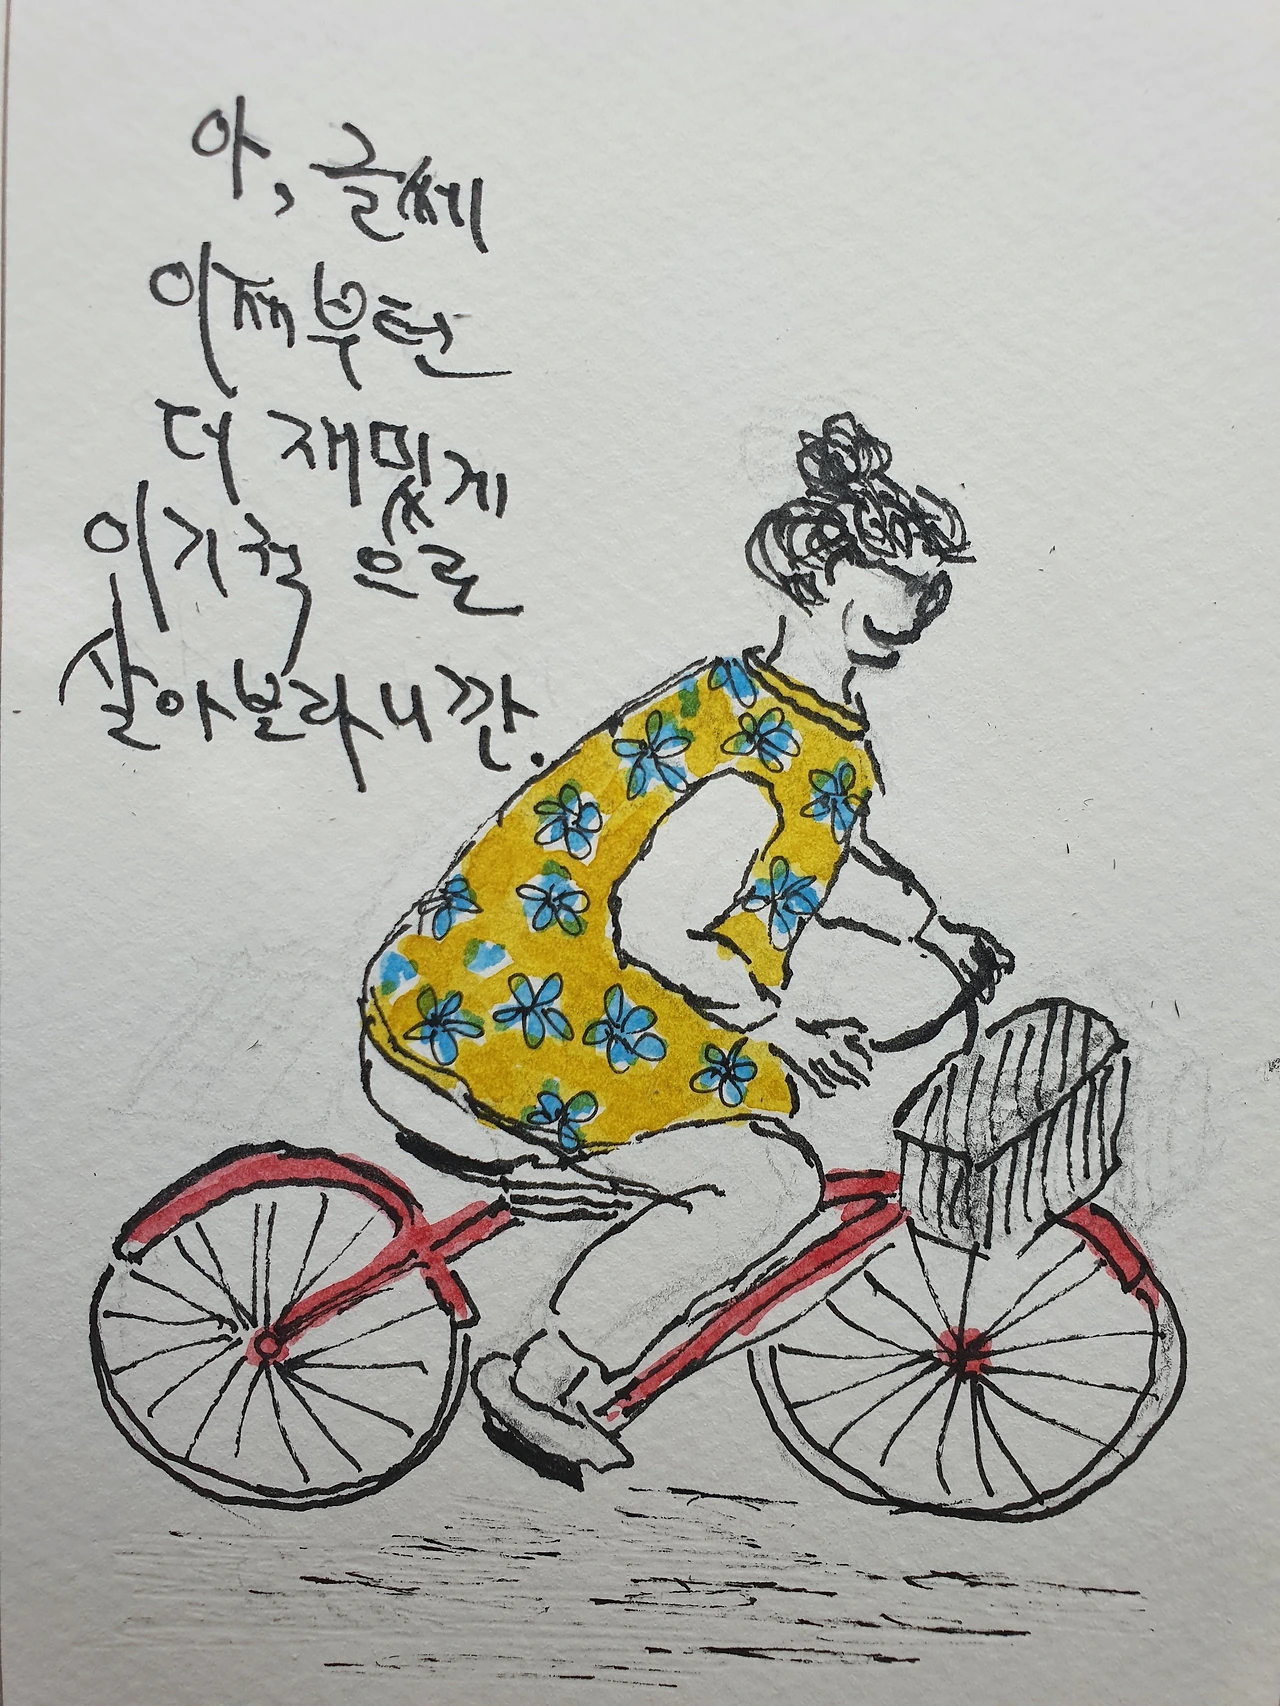 아, 글쎄
이제부턴
더 재밌게
이기적으로
살아보라니깐.